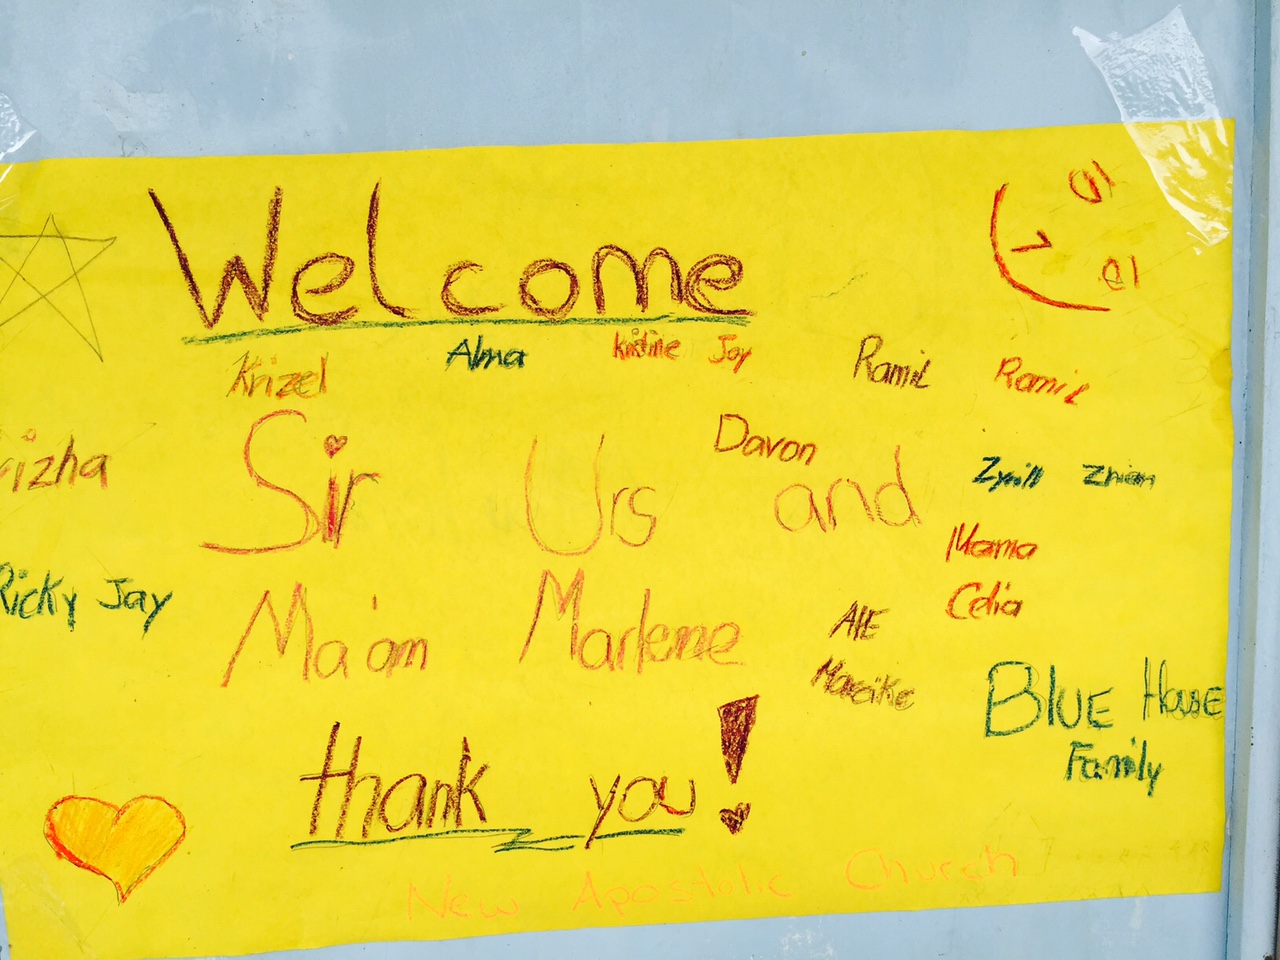 Welcome
Krizel Alma Kristine Joy Ramil Ramil
Davon
rizha Sir Urs and Zyrill
Mama
Ricky Jay Celia
Ma'am Marlene Ate
Mareike
BLUE HOUSE
Family
thank you!
New Apostolic Church